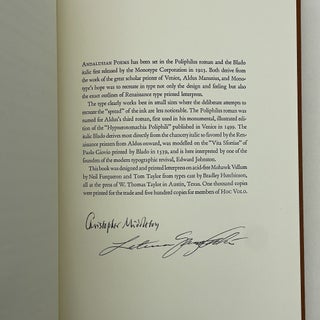 ANDALUSIAN POEMS has been set in the Poliphilus roman and the Blado
italic first released by the Monotype Corporation in 1923. Both derive from
the work of the great scholar printer of Venice, Aldus Manutius, and Mono-
type's hope was to recreate in type not only the design and feeling but also
the exact outlines of Renaissance type printed letterpress.
The type clearly works best in small sizes where the deliberate attempts to
recreate the "spread" of the ink are less noticeable. The Poliphilus roman was
named for Aldus's third roman, first used in his monumental, illustrated edi-
tion of the "Hypnerotomachia Poliphili" published in Venice in 1499. The
italic Blado derives most directly from the chancery italic so favored by the Ren-
aissance printers from Aldus onward, was modelled on the "Vita Sfortiae" of
Paolo Giovio printed by Blado in 1539, and is here interpreted by one of the
founders of the modern typographic revival, Edward Johnston.
This book was designed and printed letterpress on acid-free Mohawk Vellum
by Neil Furqueron and Tom Taylor from types cast by Bradley Hutchinson,
all at the press of W. Thomas Taylor in Austin, Texas. One thousand copies
were printed for the trade and five hundred copies for members of HOC VOLO.
Christopher Middleton